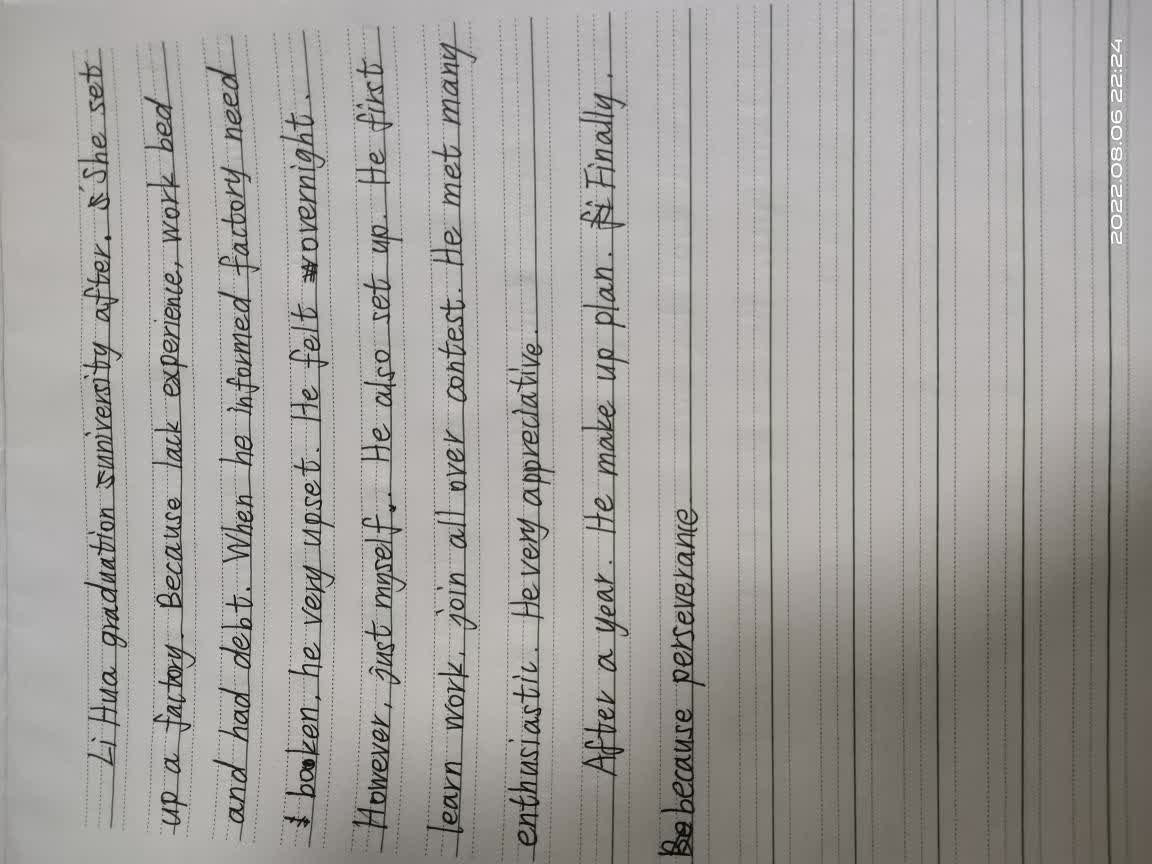 Li Hua graduation university after. She set
up a factory. Because lack experience, work bed
and had debt. When he informed factory need
booken, he very upset. He felt overnight.
However, just myself.. He also set up. He first
learn work, join all over contest. He met many
enthusiastic. He very appreciative.
After a year. He make up plan. Finally.
because perseverance
2022.08.06 22:24